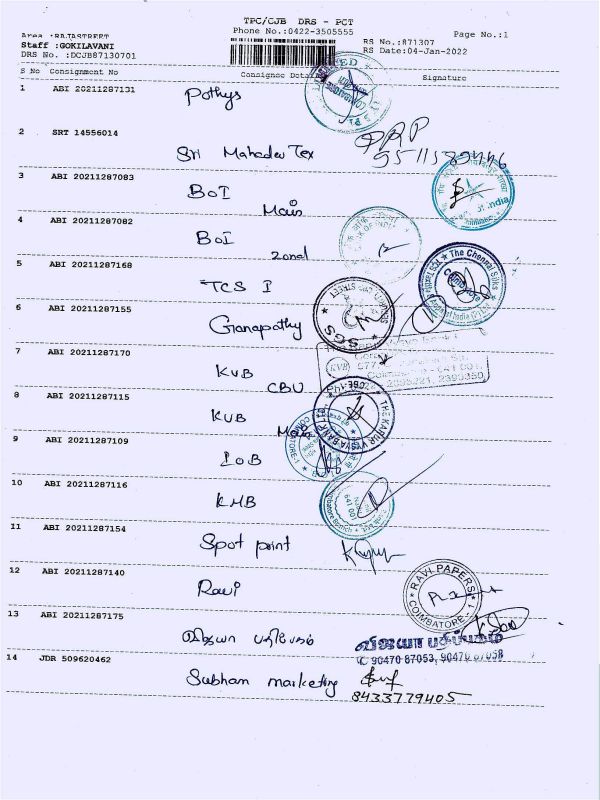 TPC/CJB DRS - PCT
Phone No.:0422-3505555
Page No.:1
Area :RAJASTREET
RS No.:871307
Staff :GOKILAVANI
RS Date:04-Jan-2022
DRS No. :DCJB87130701
S No Consignment No Consignee Details Signature
1 ABI 20211287131 Pothys
2 SRT 14556014 Sri Mahadev Tex
3 ABI 20211287083 BOI Main
4 ABI 20211287082 BOI Zonal
5 ABI 20211287168 TCS I
The Chennai Silks
6 ABI 20211287155 Ganapathy
SGS
7 ABI 20211287170 KVB CBU
KVB
8 ABI 20211287115 KVB Main
THE KARUR VYSYA BANK
9 ABI 20211287109 IOB
10 ABI 20211287116 KMB
11 ABI 20211287154 Spot print
12 ABI 20211287140 Ravi
RAVI PAPERS
COIMBATORE - 1
13 ABI 20211287175 விஜயா பதிப்பகம்
விஜயா பதிப்பகம்
90470 87053, 90470 87058
14 JDR 509620462 Subham marketing
8433779405